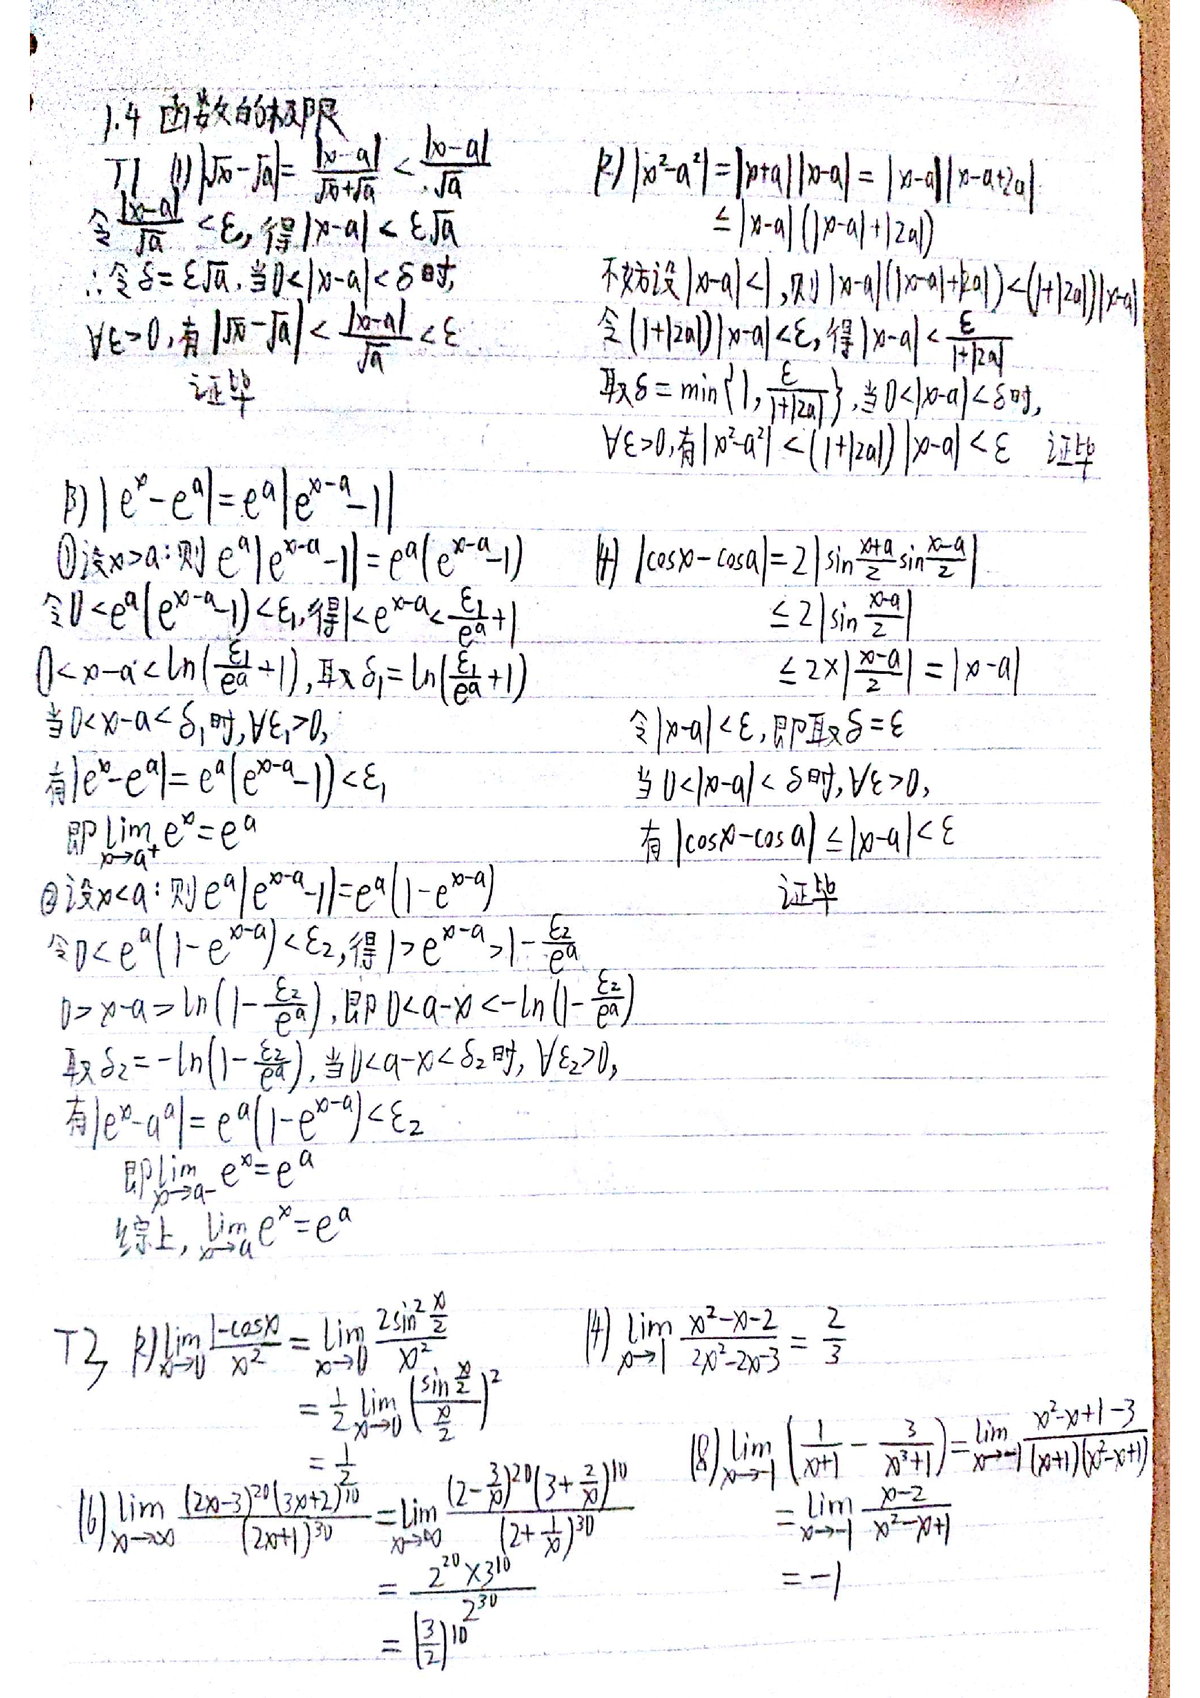 1.4 函数的极限
T1 (1) |√x-√a| = |x-a|/(√x+√a) < |x-a|/√a
令 |x-a|/√a < ε, 得|x-a| < ε√a
∴令δ=ε√a, 当0<|x-a|<δ时,
∀ε>0, 有 |√x-√a| < |x-a|/√a < ε
证毕
(2) |x²-a²| = |x+a||x-a| = |x-a||x-a+2a|
≤ |x-a|(|x-a|+|2a|)
不妨设|x-a|<1, 则|x-a|(|x-a|+|2a|)<(1+|2a|)|x-a|
令(1+|2a|)|x-a|<ε, 得|x-a|<ε/(1+|2a|)
取δ=min{1, ε/(1+|2a|)}, 当0<|x-a|<δ时,
∀ε>0, 有|x²-a²|<(1+|2a|)|x-a|<ε 证毕
(3) |e^x-e^a|=e^a|e^(x-a)-1|
①设x>a: 则 e^a|e^(x-a)-1|=e^a(e^(x-a)-1)
令0<e^a(e^(x-a)-1)<ε₁, 得1<e^(x-a)<ε₁/e^a+1
0<x-a<ln(ε₁/e^a+1), 取δ₁=ln(ε₁/e^a+1)
当0<x-a<δ₁时, ∀ε₁>0,
有|e^x-e^a|=e^a(e^(x-a)-1)<ε₁
即 lim_(x→a+) e^x=e^a
②设x<a: 则e^a|e^(x-a)-1|=e^a(1-e^(x-a))
令0<e^a(1-e^(x-a))<ε₂, 得1>e^(x-a)>1-ε₂/e^a
0>x-a>ln(1-ε₂/e^a), 即0<a-x<-ln(1-ε₂/e^a)
取δ₂=-ln(1-ε₂/e^a), 当0<a-x<δ₂时, ∀ε₂>0,
有|e^x-a^a|=e^a(1-e^(x-a))<ε₂
即 lim_(x→a-) e^x=e^a
综上, lim_(x→a) e^x=e^a
(4) |cosx-cosa|=2|sin (x+a)/2 sin (x-a)/2|
≤2|sin (x-a)/2|
≤2×|(x-a)/2|=|x-a|
令|x-a|<ε, 即取δ=ε
当0<|x-a|<δ时, ∀ε>0,
有|cosx-cosa|≤|x-a|<ε
证毕
T3 (2) lim_(x→0) (1-cosx)/x² = lim_(x→0) 2sin²(x/2)/x²
= 1/2 lim_(x→0) (sin(x/2)/(x/2))²
= 1/2
(4) lim_(x→1) (x²-x-2)/(2x²-2x-3) = 2/3
(6) lim_(x→∞) (2x-3)^20(3x+2)^10/(2x+1)^30 = lim_(x→∞) (2-3/x)^20(3+2/x)^10/(2+1/x)^30
= 2^20×3^10/2^30
= (3/2)^10
(8) lim_(x→-1) (1/(x+1) - 3/(x³+1)) = lim_(x→-1) (x²-x+1-3)/((x+1)(x²-x+1))
= lim_(x→-1) (x-2)/(x²-x+1)
= -1